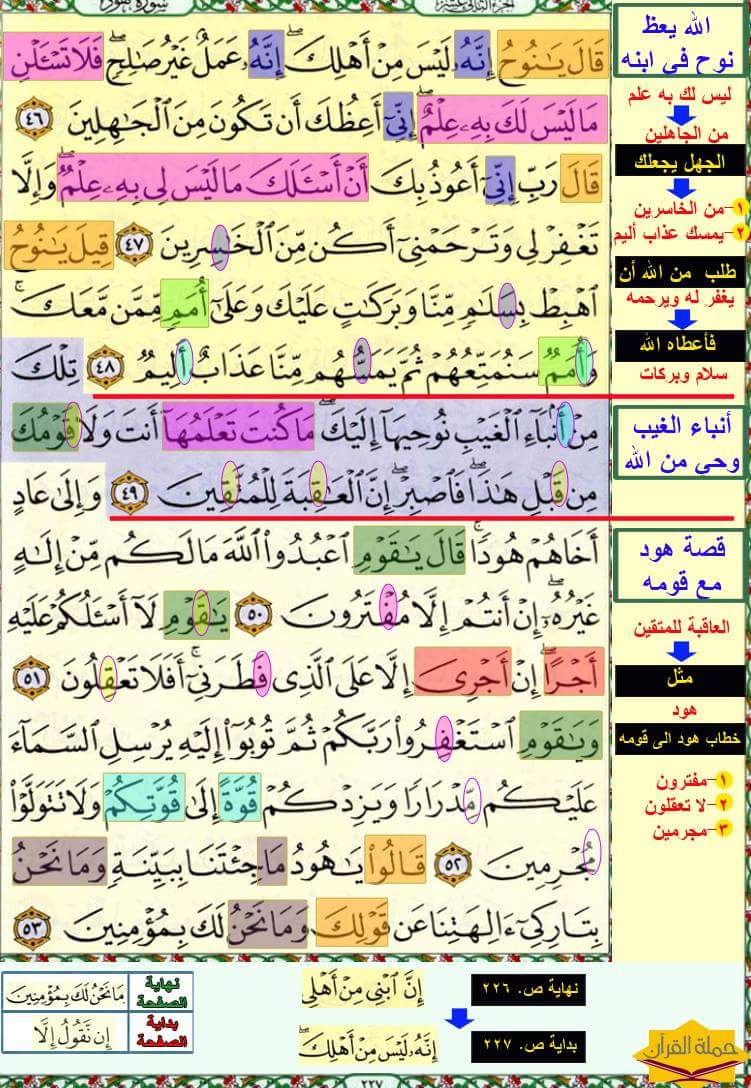 سورة هود
الجزء الثاني عشر
قَالَ يَٰنُوحُ إِنَّهُۥ لَيْسَ مِنْ أَهْلِكَ ۖ إِنَّهُۥ عَمَلٌ غَيْرُ صَٰلِحٍ ۖ فَلَا تَسْـَٔلْنِ
مَا لَيْسَ لَكَ بِهِۦ عِلْمٌ ۖ إِنِّىٓ أَعِظُكَ أَن تَكُونَ مِنَ ٱلْجَٰهِلِينَ ٤٦
قَالَ رَبِّ إِنِّىٓ أَعُوذُ بِكَ أَنْ أَسْـَٔلَكَ مَا لَيْسَ لِى بِهِۦ عِلْمٌ ۖ وَإِلَّا
تَغْفِرْ لِى وَتَرْحَمْنِىٓ أَكُن مِّنَ ٱلْخَٰسِرِينَ ٤٧ قِيلَ يَٰنُوحُ
ٱهْبِطْ بِسَلَٰمٍ مِّنَّا وَبَرَكَٰتٍ عَلَيْكَ وَعَلَىٰٓ أُمَمٍ مِّمَّن مَّعَكَ ۚ
وَأُمَمٌ سَنُمَتِّعُهُمْ ثُمَّ يَمَسُّهُم مِّنَّا عَذَابٌ أَلِيمٌ ٤٨ تِلْكَ
مِنْ أَنۢبَآءِ ٱلْغَيْبِ نُوحِيهَآ إِلَيْكَ ۖ مَا كُنتَ تَعْلَمُهَآ أَنتَ وَلَا قَوْمُكَ
مِن قَبْلِ هَٰذَا ۖ فَٱصْبِرْ ۖ إِنَّ ٱلْعَٰقِبَةَ لِلْمُتَّقِينَ ٤٩ وَإِلَىٰ عَادٍ
أَخَاهُمْ هُودًا ۚ قَالَ يَٰقَوْمِ ٱعْبُدُوا۟ ٱللَّهَ مَا لَكُم مِّنْ إِلَٰهٍ
غَيْرُهُۥٓ ۖ إِنْ أَنتُمْ إِلَّا مُفْتَرُونَ ٥٠ يَٰقَوْمِ لَآ أَسْـَٔلُكُمْ عَلَيْهِ
أَجْرًا ۖ إِنْ أَجْرِىَ إِلَّا عَلَى ٱلَّذِى فَطَرَنِىٓ ۚ أَفَلَا تَعْقِلُونَ ٥١
وَيَٰقَوْمِ ٱسْتَغْفِرُوا۟ رَبَّكُمْ ثُمَّ تُوبُوٓا۟ إِلَيْهِ يُرْسِلِ ٱلسَّمَآءَ
عَلَيْكُم مِّدْرَارًا وَيَزِدْكُمْ قُوَّةً إِلَىٰ قُوَّتِكُمْ وَلَا تَتَوَلَّوْا۟
مُجْرِمِينَ ٥٢ قَالُوا۟ يَٰهُودُ مَا جِئْتَنَا بِبَيِّنَةٍ وَمَا نَحْنُ
بِتَارِكِىٓ ءَالِهَتِنَا عَن قَوْلِكَ وَمَا نَحْنُ لَكَ بِمُؤْمِنِينَ ٥٣
الله يعظ
نوح في ابنه
ليس لك به علم
من الجاهلين
الجهل يجعلك
١- من الخاسرين
٢- يمسك عذاب أليم
طلب من الله أن
يغفر له ويرحمه
فأعطاه الله
سلام وبركات
أنباء الغيب
وحي من الله
قصة هود
مع قومه
العاقبة للمتقين
مثل
هود
خطاب هود الى قومه
١- مفترون
٢- لا تعقلون
٣- مجرمين
نهاية ص. ٢٢٦
إِنَّ ٱبْنِى مِنْ أَهْلِى
بداية ص. ٢٢٧
إِنَّهُۥ لَيْسَ مِنْ أَهْلِكَ ۖ
نهاية الصفحة
مَا نَحْنُ لَكَ بِمُؤْمِنِينَ
بداية الصفحة
إِن نَّقُولُ إِلَّا
حملة القرآن
٢٢٧